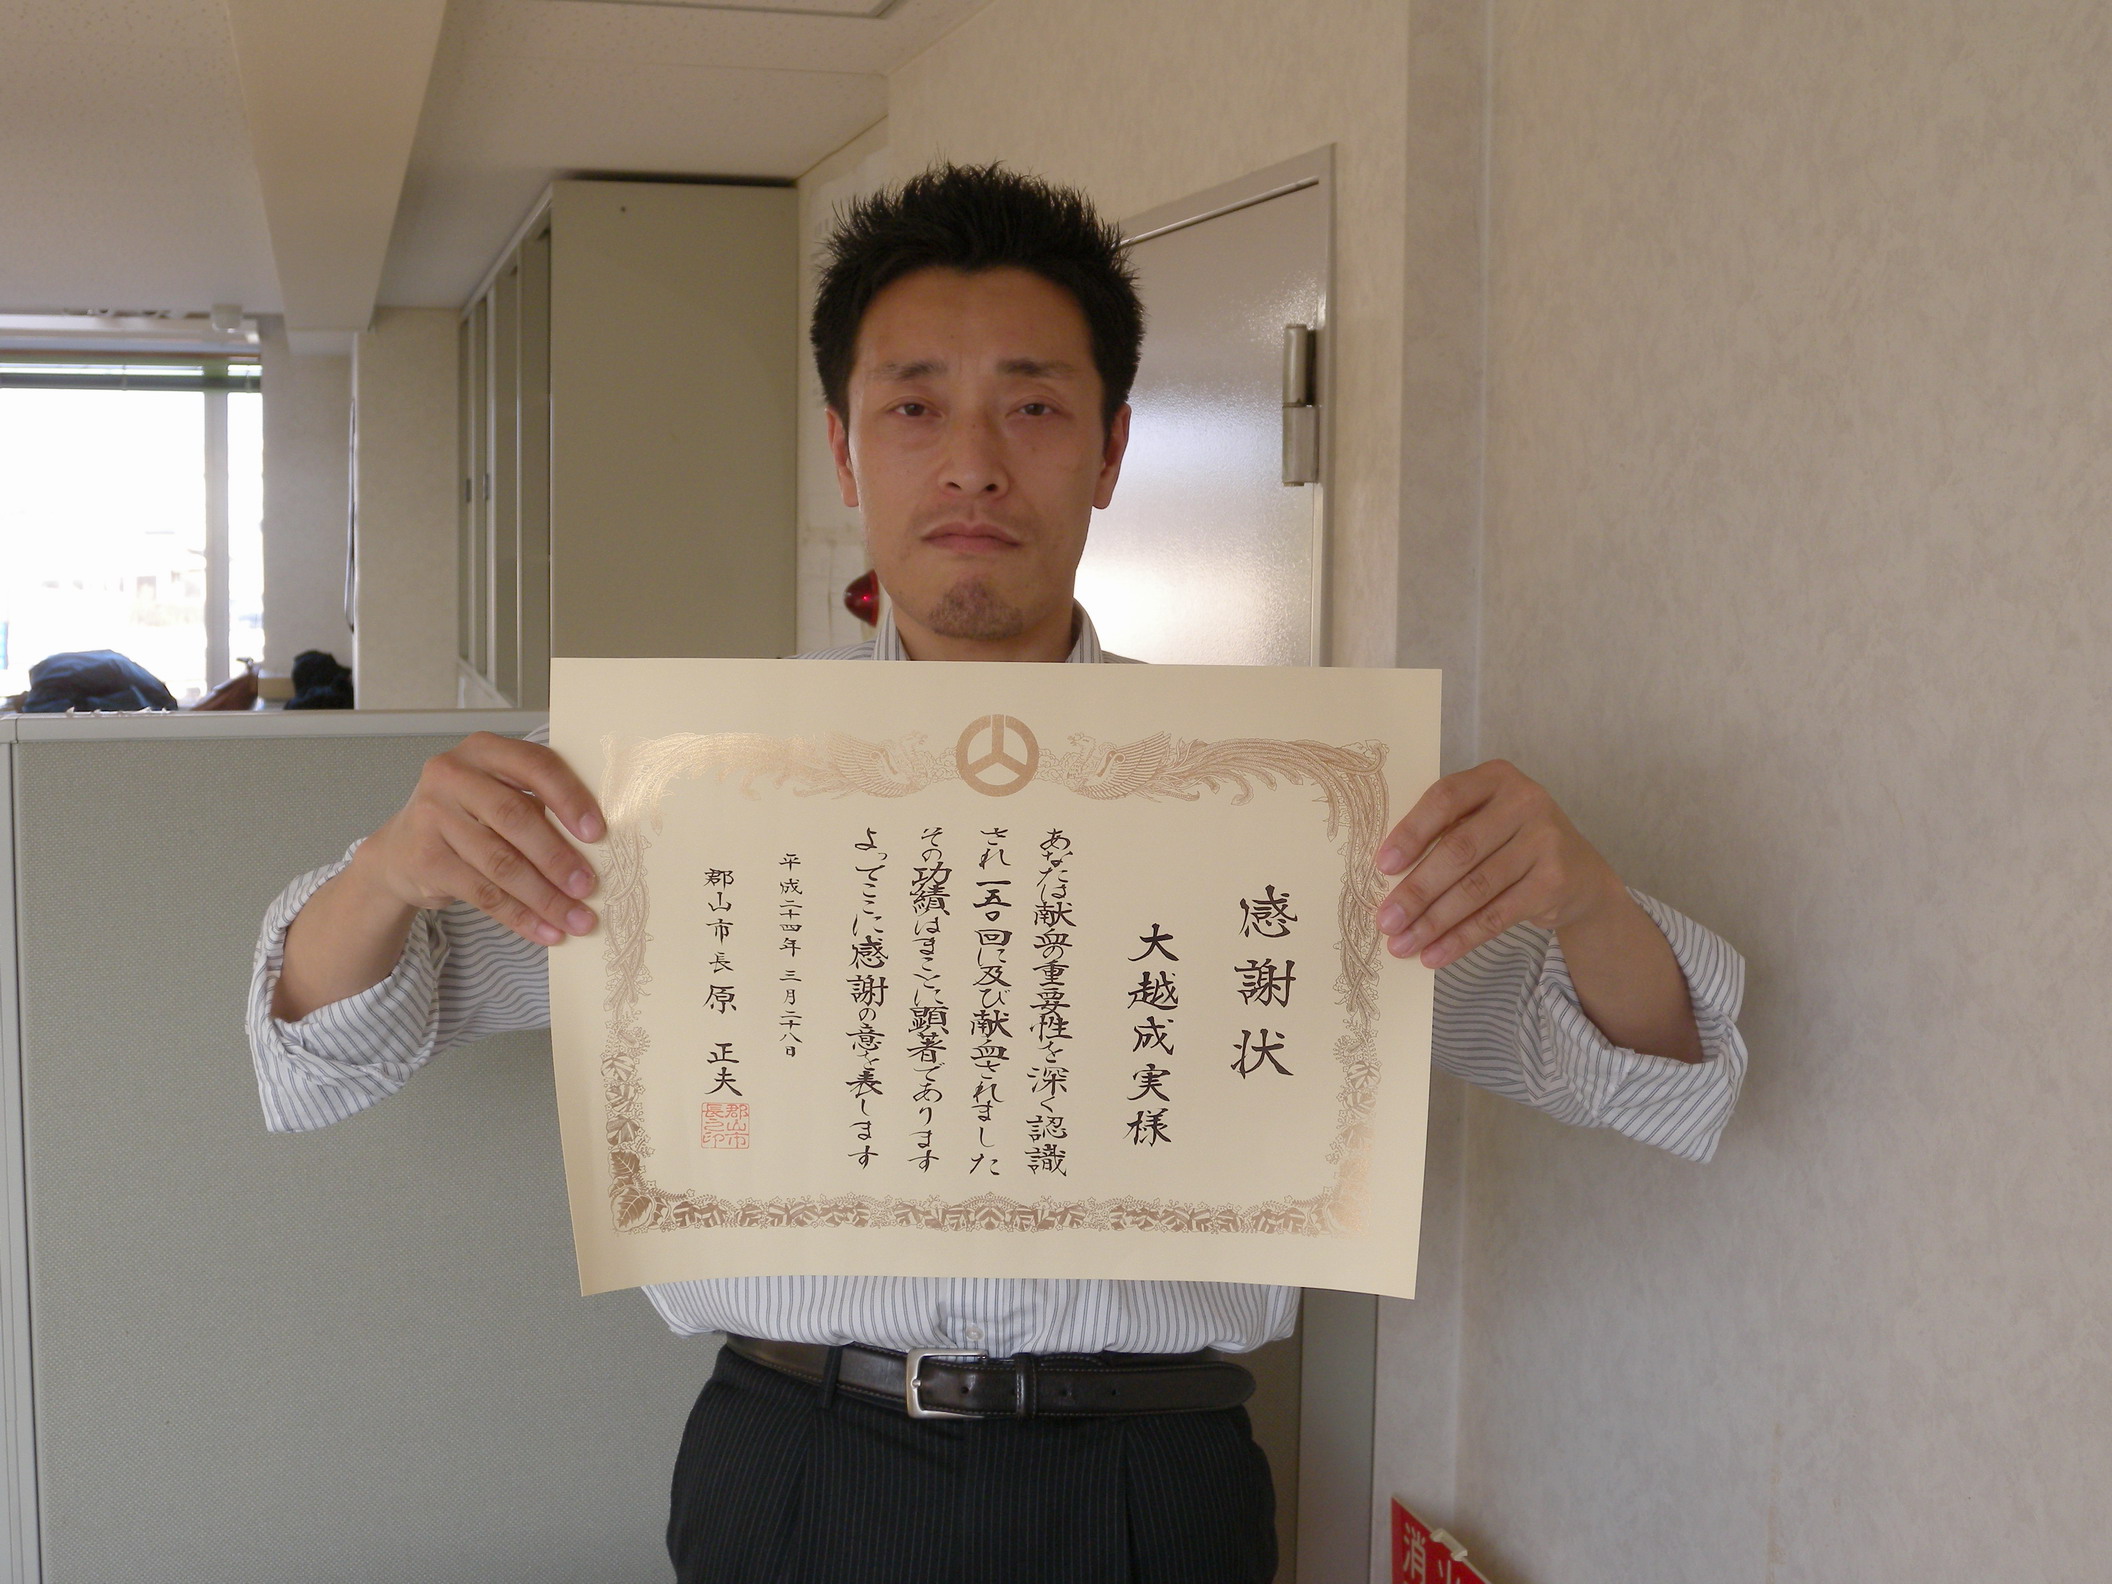 感謝状
大越成実様
あなたは献血の重要性を深く認識
され一五〇回に及び献血されました
その功績はまことに顕著であります
よってここに感謝の意を表します
平成二十四年三月二十八日
郡山市長原正夫
郡山市
長之印
消火